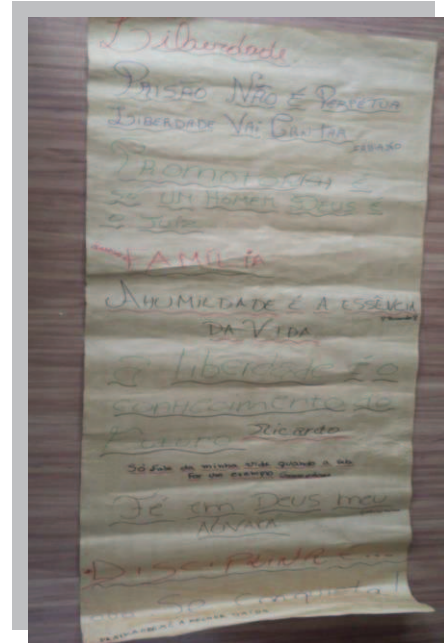 Liberdade.
PRISÃO NÃO É PERPETUA
LIBERDADE VAI CANTAR
É
SÓ UM HOMEM DEUS É
FAMILIA
A HUMILDADE É A ESSÊNCIA
DA VIDA
A liberdade é o
conhecimento do
Futuro Ricardo
Só fale da minha vida quando a sua
for um exemplo
Fé em Deus meu
DISCIPLINA É
Se conquista!